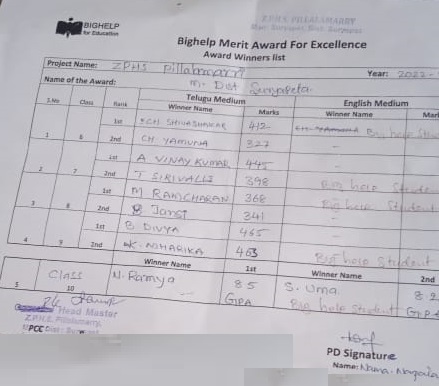 BIGHELP
for Education
Z.P.H.S PILLALAMARRY
Bighelp Merit Award For Excellence
Award Winners list
Project Name: ZPHS Pillalamarri Year: 2022-
Name of the Award: Dist Suryapeta
S.No Class Rank Telugu Medium English Medium
Winner Name Marks Winner Name Mark
1 6 1st CH SHIVASHANKAR 412 Big help Stu
2nd CH YAMUNA 327 -
2 7 1st A VINAY KUMAR 445 -
2nd T SIRIVALLI 398 Big help Student
3 8 1st M RAMCHARAN 368 Big help Student
2nd B Jansi 341 -
4 9 1st B DIVYA 465 -
2nd K. NIHARIKA 463 Big help Student
Winner Name 1st Winner Name 2nd
5 Class 10 N. Ramya 85 GPA S. Uma 82
Big help Student GPA
Head Master
Z.P.H.S. Pillalamarry,
PCC
PD Signature
Name: